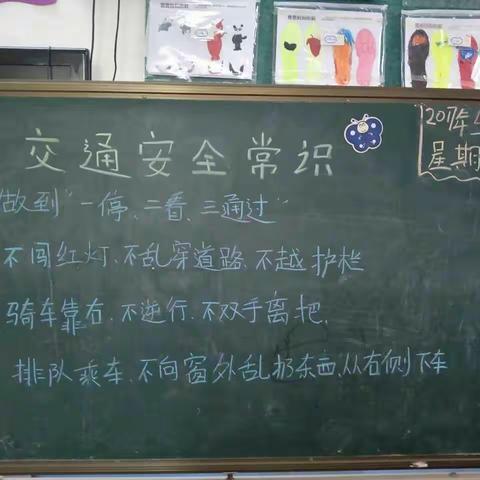 交通安全常识
2017年
星期
做到“一停、二看、三通过”
不闯红灯、不乱穿道路、不越护栏
骑车靠右、不逆行、不双手离把、
排队乘车、不向窗外乱扔东西、从右侧下车